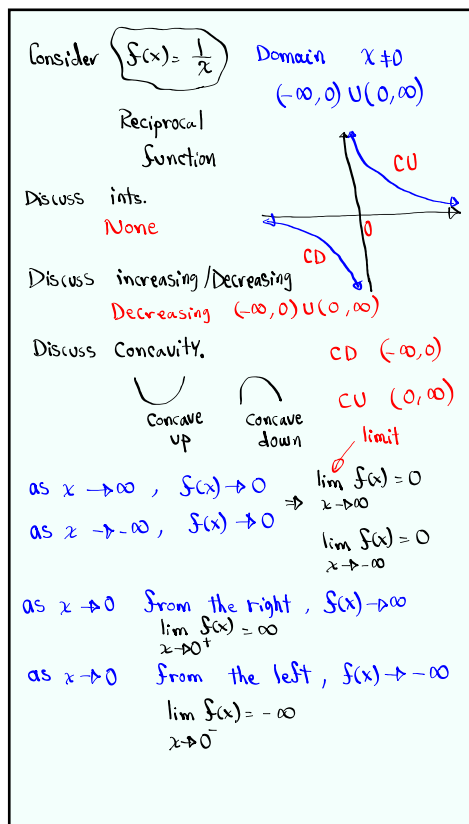 Consider f(x) = 1/x Domain x ≠ 0
(-∞, 0) ∪ (0, ∞)
Reciprocal
function
CU
Discuss ints.
None
0
CD
Discuss increasing/Decreasing
Decreasing (-∞, 0) ∪ (0, ∞)
Discuss Concavity. CD (-∞, 0)
CU (0, ∞)
Concave up
Concave down
limit
as x → ∞, f(x) → 0 ⇒ lim x→∞ f(x) = 0
as x → -∞, f(x) → 0
lim x→-∞ f(x) = 0
as x → 0 from the right, f(x) → ∞
lim x→0⁺ f(x) = ∞
as x → 0 from the left, f(x) → -∞
lim x→0⁻ f(x) = -∞